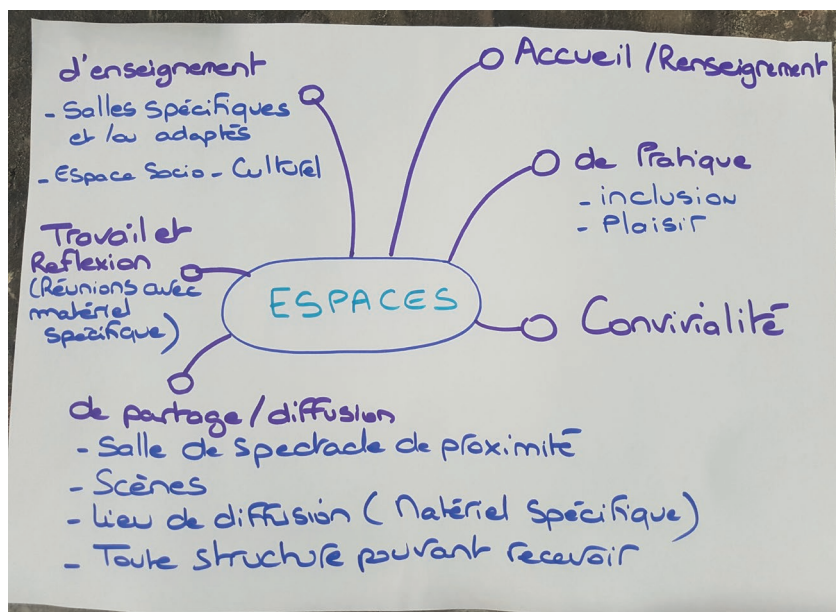 d'enseignement
- Salles spécifiques
et /ou adaptés
- Espace Socio-Culturel
Accueil /Renseignement
de Pratique
- inclusion
- Plaisir
Travail et
Reflexion
(Réunions avec
matériel
spécifique)
ESPACES
Convivialité
de partage/diffusion
- Salle de spectacle de proximité
- Scènes
- Lieu de diffusion (Matériel Spécifique)
- Toute structure pouvant recevoir